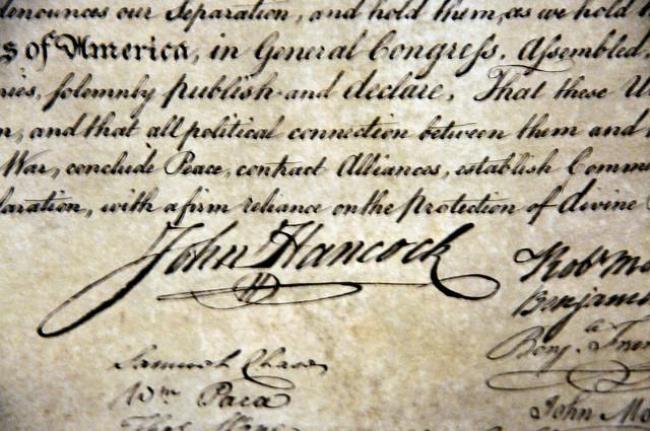 denounces our Separation, and hold them, as we hold
s of America, in General Congress, Assembled,
nies, solemnly publish and declare, That these U
n, and that all political connection between them and
War, conclude Peace, contract Alliances, establish Comme
laration, with a firm reliance on the protection of divine
John Hancock
Robt Mo
Benjamin
Benja. Fran
Samuel Chase
Wm Paca
John Mo